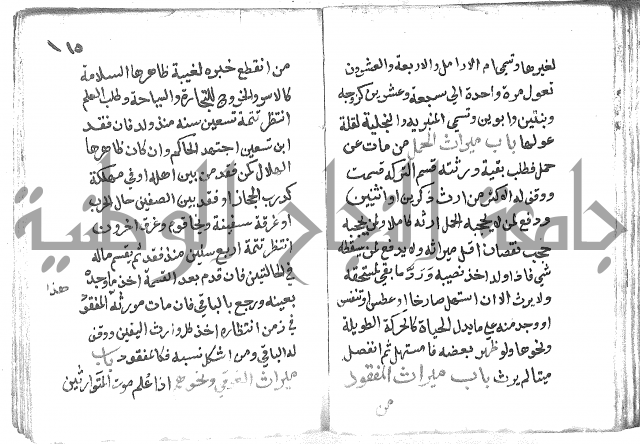 لغيرها وتسمى ام الارامل والاربعة والعشرون
تعول مرة واحدة الى سبعة وعشرين كزوجه
وبنتين وابوين وتسمى المنبريه والبخيلية لقلة
عولها باب ميراث الحمل من مات عن
حمل فطلب بقية ورثته قسم التركه قسمت
ووقف له الاكثر من ارث ذكرين او انثيين
ودفع لمن لا يحجبه الحمل ارثه كاملا ولمن يحجبه
حجب نقصان اقل ميراثه ولا يدفع لمن يسقطه
شي فاذا ولد اخذ نصيبه ورد ما بقي لمستحقه
ولا يرث الا ان استهل صارخا او عطس او تنفس
او وجد منه ما يدل الحياة كالحركة الطويلة
ونحوها ولو ظهر بعضه فاستهل ثم انفصل
ميتا لم يرث باب ميراث المفقود
من
١١٥
من انقطع خبره لغيبة ظاهرها السلامة
كالاسر والخروج للتجارة والسياحة وطلب العلم
انتظر تتمة تسعين سنه منذ ولد فان فقد
ابن تسعين اجتهد الحاكم وان كان ظاهرها
الهلاك كمن فقد من بين اهله او في مهلكة
كدرب الحجاز او فقد بين الصفين حال الحرب
او غرقت سفينة ونجا قوم وغرق اخرون
انتظر تتمة اربع سنين منذ فقد ثم يقسم ماله
في الحالتين فان قدم بعد القسمة اخذ ما وجده
هذا
بعينه ورجع بالباقي فان مات مورث المفقود
في زمن انتظاره اخذ كل وارث اليقين ووقف
له الباقي ومن اشكل نسبه فكالمفقود باب
ميراث الغرقى ونحوهم اذا علم موت المتوارثين
جامعة النجاح الوطنية